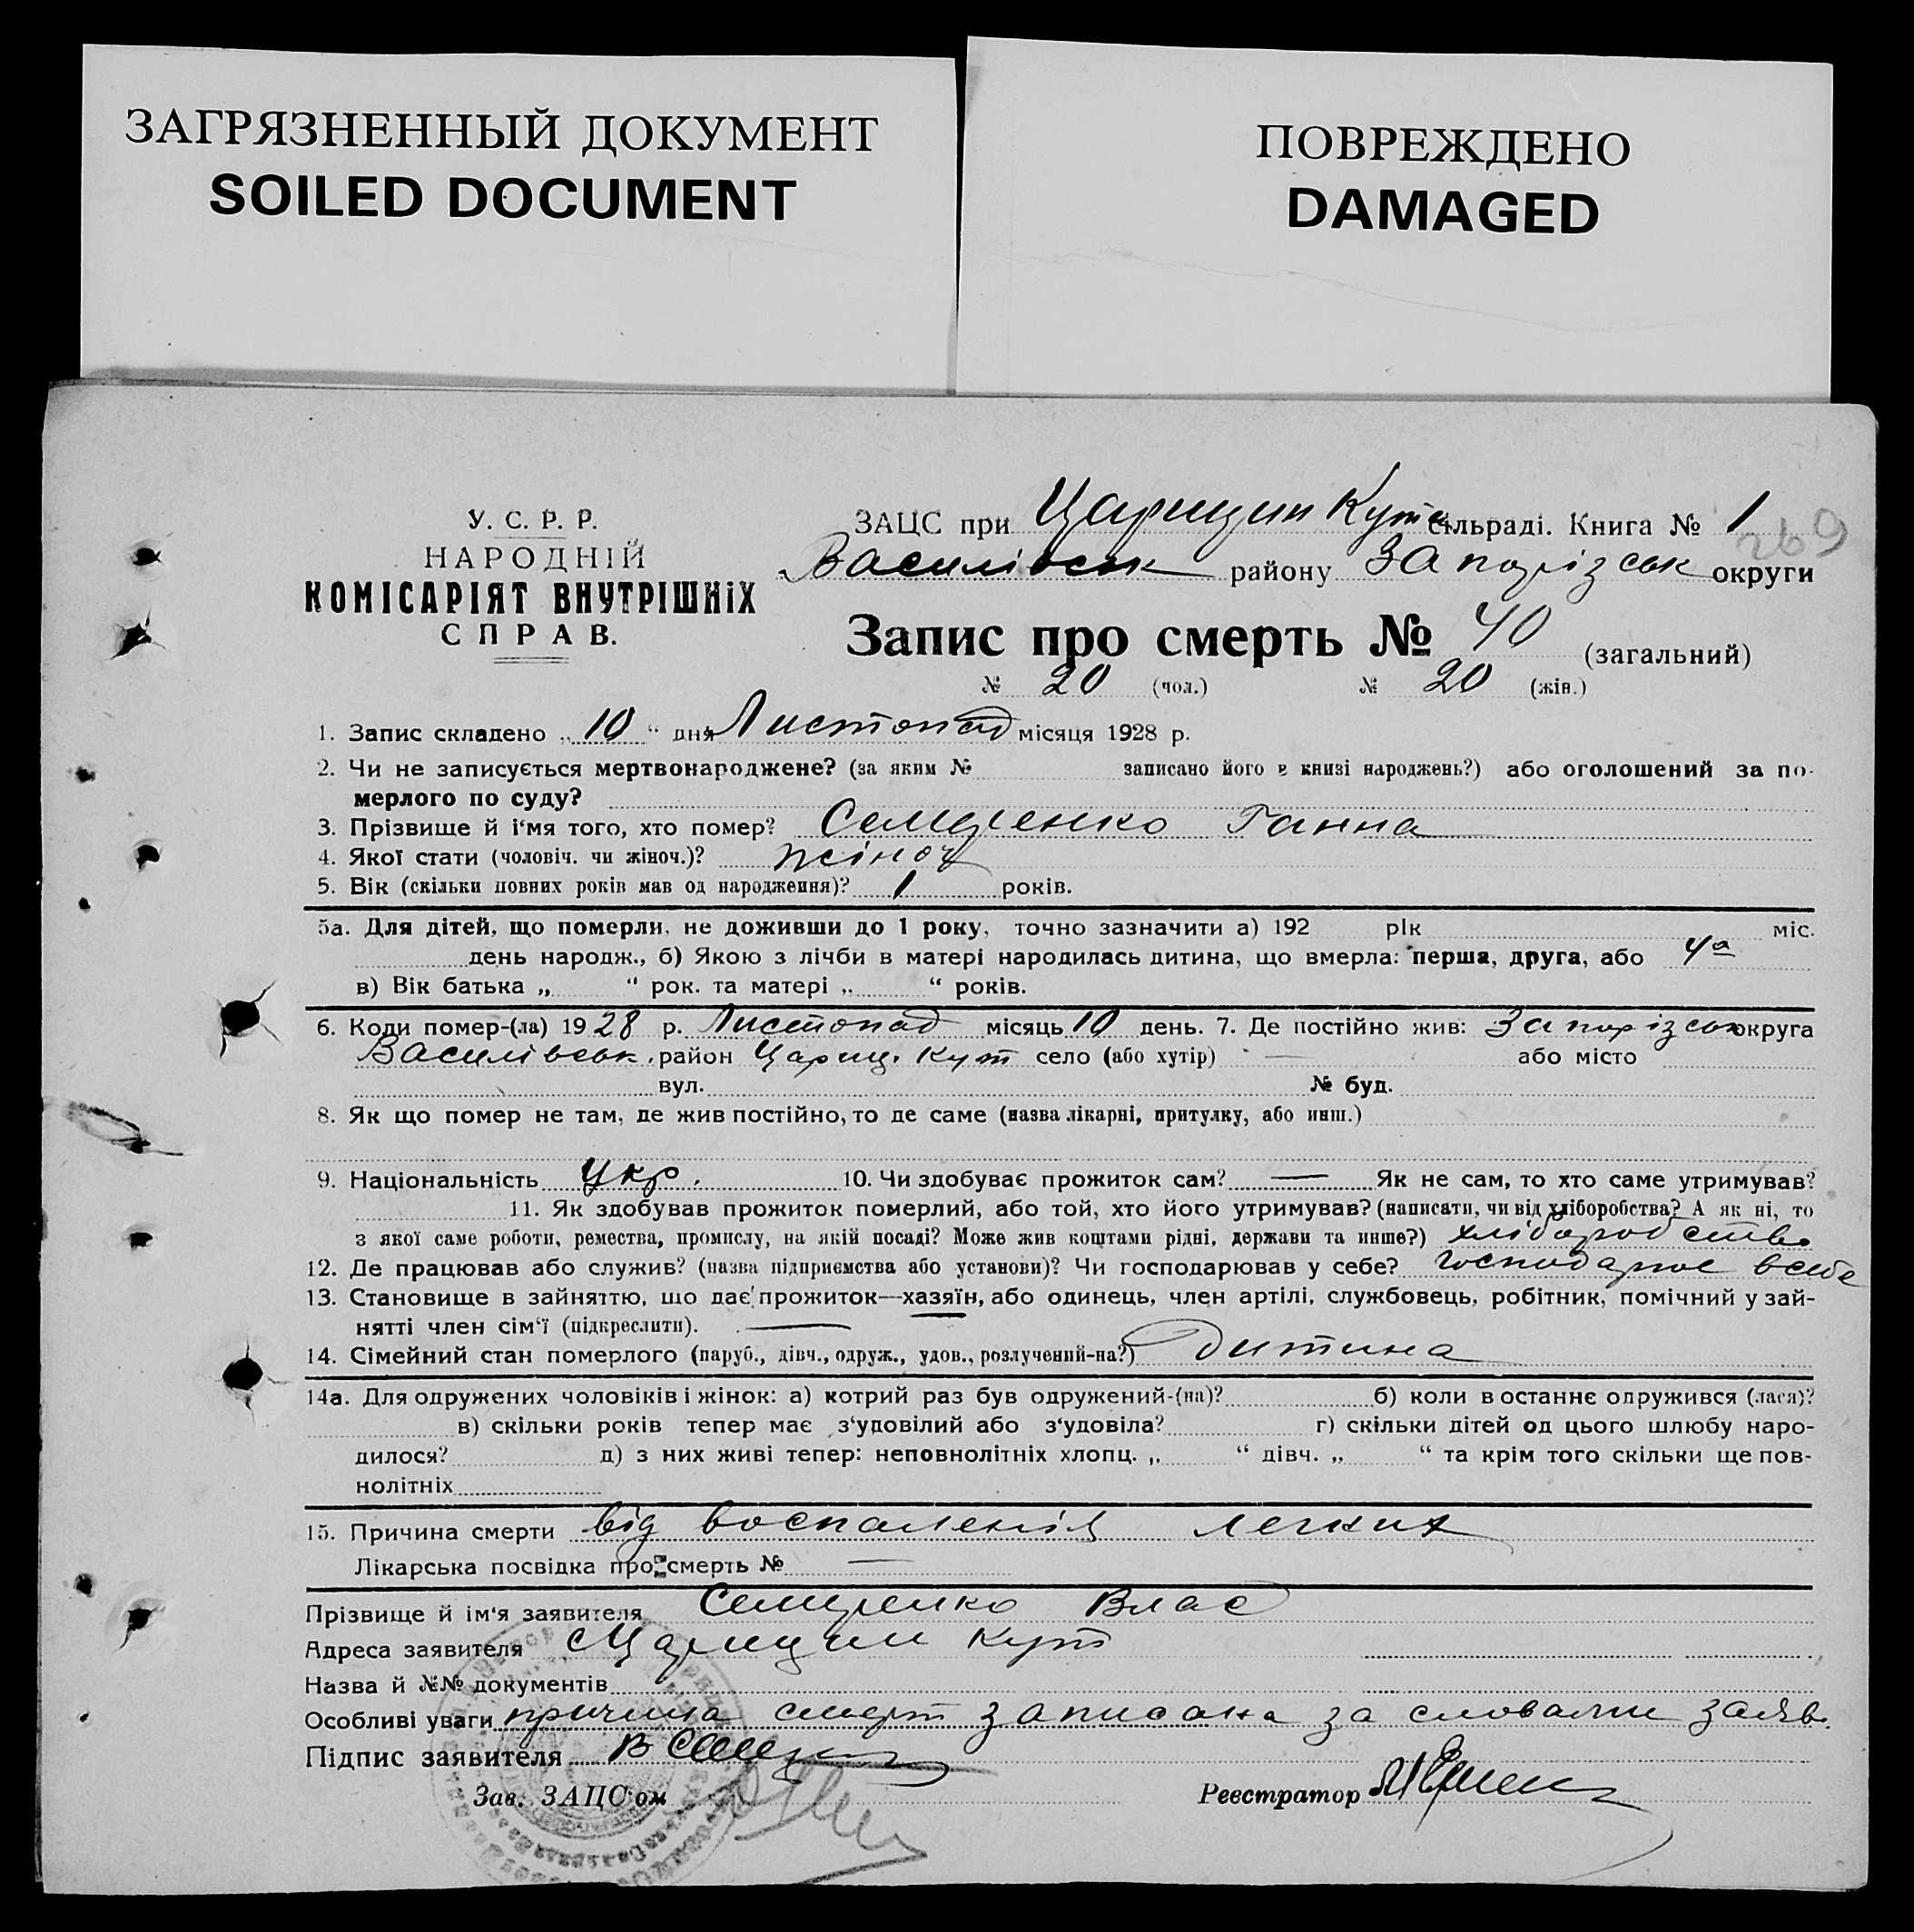 ЗАГРЯЗНЕННЫЙ ДОКУМЕНТ
SOILED DOCUMENT
ПОВРЕЖДЕНО
DAMAGED
У. С. Р. Р.
НАРОДНІЙ
КОМІСАРІЯТ ВНУТРІШНІХ
СПРАВ.
ЗАЦС при Царицин Кутс сільраді. Книга № 1
269
Василівськ району Запорізськ округи
Запис про смерть № 40 (загальний)
№ 20 (чол.) № 20 (жін.)
1. Запис складено „10“ дня Листопад місяця 1928 р.
2. Чи не записується мертвонароджене? (за яким № записано його в книзі народжень?) або оголошений за по-
мерлого по суду?
3. Прізвище й і‘мя того, хто помер? Ганна
4. Якої стати (чоловіч. чи жіноч.)? жіноч
5. Вік (скільки повних років мав од народження)? 1 років.
5а. Для дітей, що померли, не доживши до 1 року, точно зазначити а) 192 рік міс.
день народж., б) Якою з лічби в матері народилась дитина, що вмерла: перша, друга, або 4а
в) Вік батька „ “ рок. та матері „ “ років.
6. Коли помер-(ла) 1928 р. Листопад місяць 10 день. 7. Де постійно жив: Запорізськ округа
Василівськ. район Цариц. Кут село (або хутір) — або місто
вул. № буд.
8. Як що помер не там, де жив постійно, то де саме (назва лікарні, притулку, або инш.)
9. Національність Укр. 10. Чи здобуває прожиток сам? — Як не сам, то хто саме утримував?
11. Як здобував прожиток померлий, або той, хто його утримував? (написати, чи від хліборобства? А як ні, то
з якої саме роботи, ремества, промислу, на якій посаді? Може жив коштами рідні, держави та инше?) хліборобство
12. Де працював або служив? (назва підприємства або установи)? Чи господарював у себе? всебе
13. Становище в зайняттю, що дає прожиток—хазяїн, або одинець, член артілі, службовець, робітник, помічний у зай-
нятті член сім‘ї (підкреслити). —
14. Сімейний стан померлого (паруб., дівч., одруж., удов., розлучений-на?) Дитина
14а. Для одружених чоловіків і жінок: а) котрий раз був одружений-(на)? б) коли в останнє одружився (лася)?
в) скільки років тепер має з‘удовілий або з‘удовіла? г) скільки дітей од цього шлюбу наро-
дилося? д) з них живі тепер: неповнолітніх хлопц. „ “ дівч. „ “ та крім того скільки ще пов-
нолітніх
15. Причина смерти від воспаленія легких
Лікарська посвідка про смерть № —
Прізвище й ім‘я заявителя Влас
Адреса заявителя Царицин Кут
Назва й №№ документів
Особливі уваги причина смерт записана за словами заяв.
Підпис заявителя
Зав. ЗАЦС‘ом
Реестратор